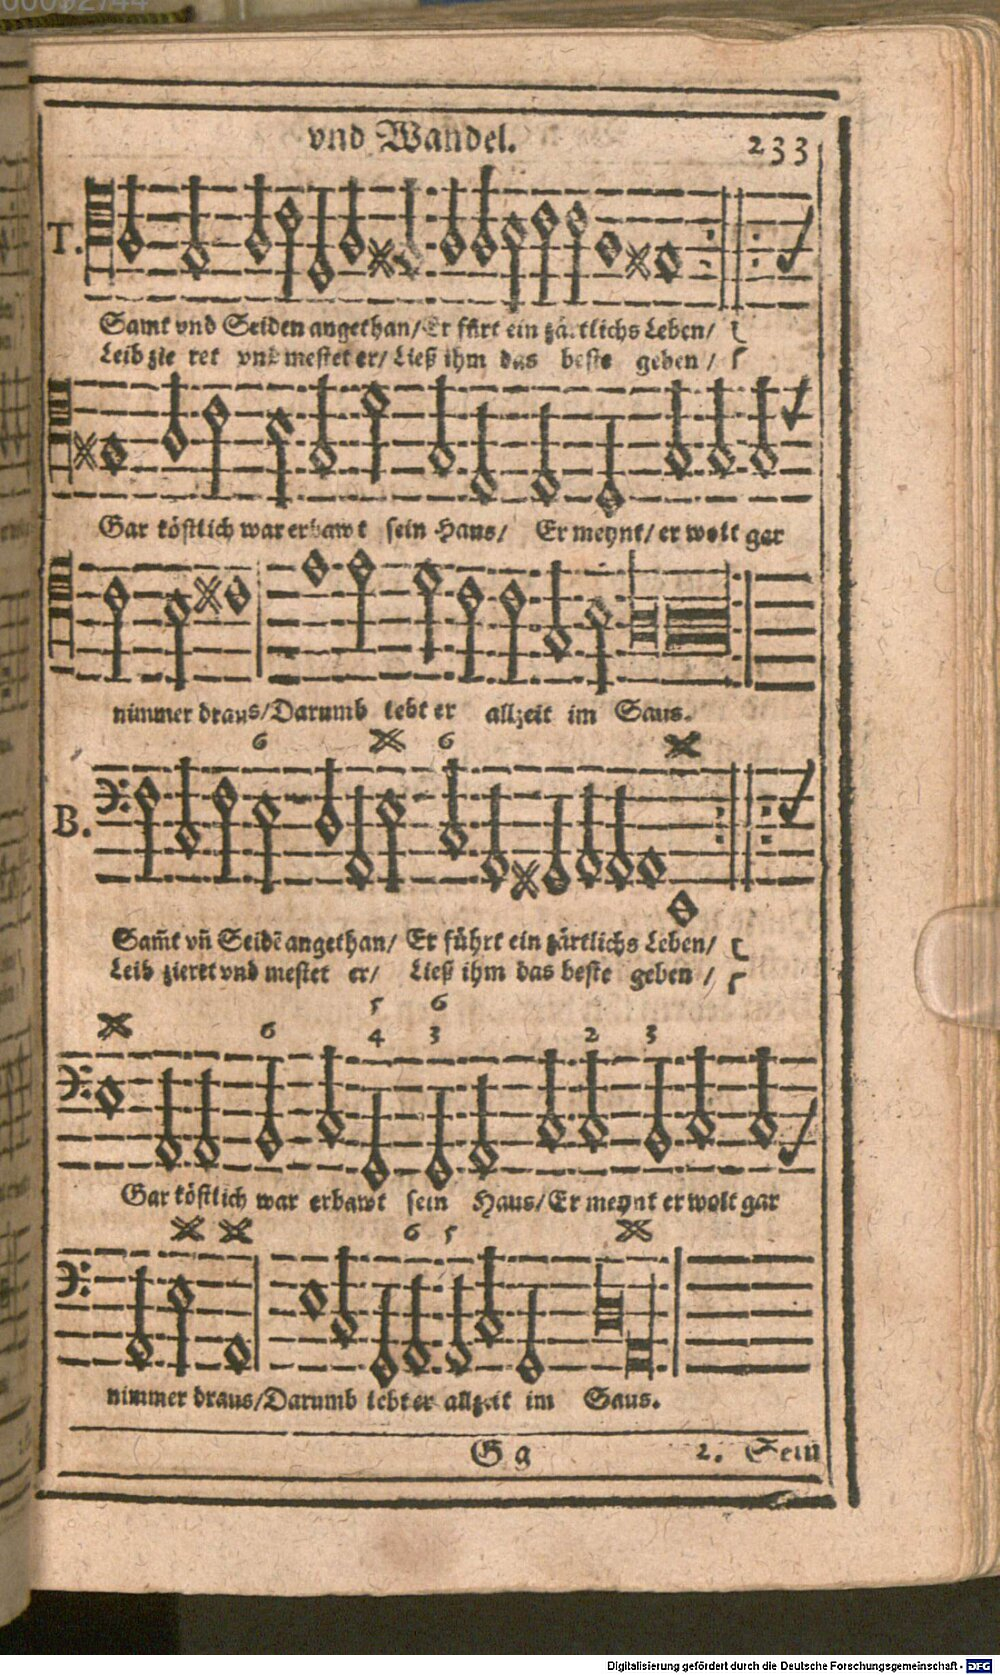 vnd Wandel. 233
T.
Samt vnd Seiden angethan/ Er fürt ein zärtlichs Leben/
Leib zie ret vnd mestet er/ Ließ ihm das beste geben /
Gar köstlich war erbawt sein Haus/ Er meynt/ er wolt gar
nimmer draus/Darumb lebt er allzeit im Saus.
6 6
B.
Sam̄t vn̄ Seidē angethan/ Er führt ein zärtlichs Leben/
Leib zieret vnd mestet er/ Ließ ihm das beste geben /
5 6
6 4 3 2 3
Gar köstlich war erbawt sein Haus/ Er meynt er wolt gar
6 5
nimmer draus/Darumb lebt er allzeit im Saus.
G g 2. Sein
Digitalisierung gefördert durch die Deutsche Forschungsgemeinschaft - DFG